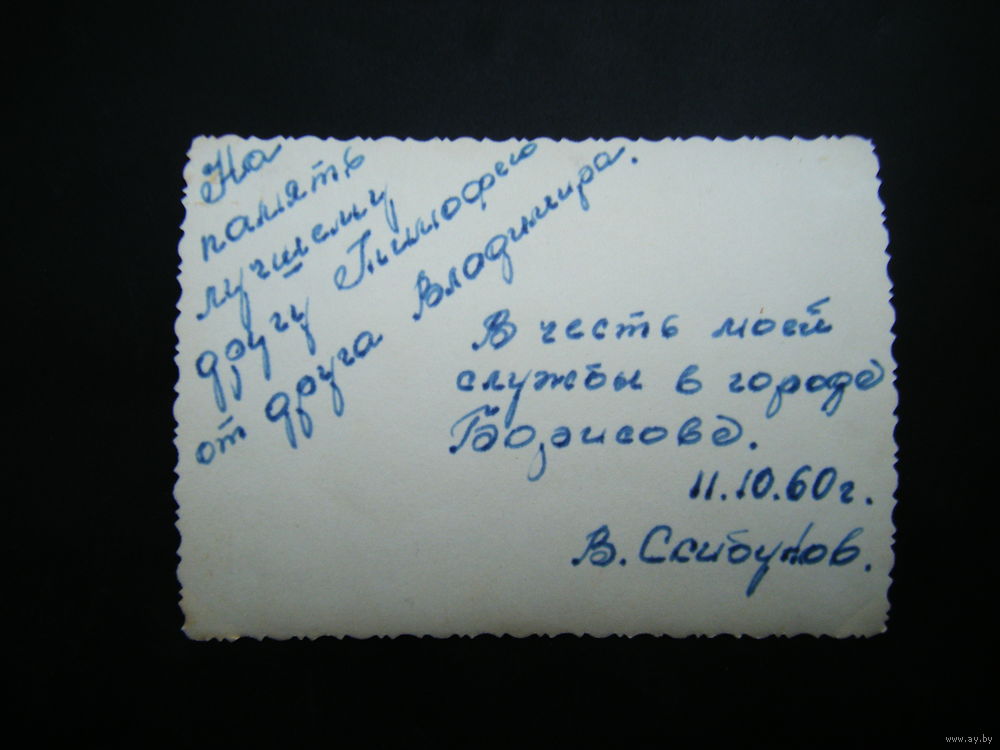 На
память
лучшему
другу Тимофею
от друга Владимира.
В честь моей
службы в городе
Борисове.
11.10.60г.
В.
www.ay.by